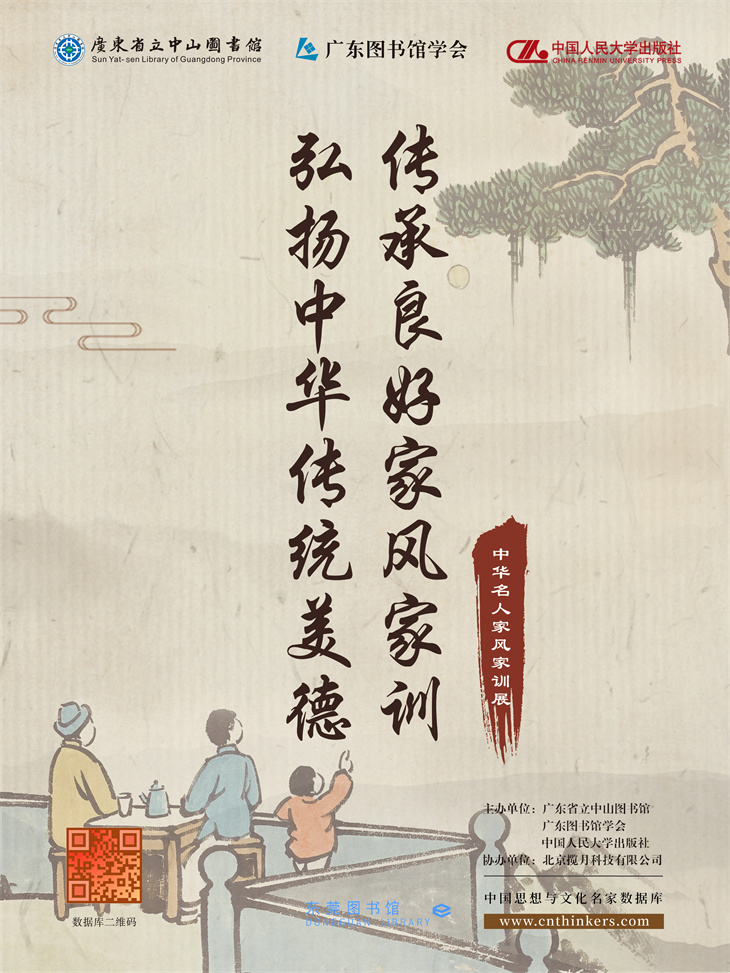 廣東省立中山圖書館
Sun Yat-sen Library of Guangdong Province
广东图书馆学会
中国人民大学出版社
CHINA RENMIN UNIVERSITY PRESS
传承良好家风家训
弘扬中华传统美德
中华名人家风家训展
主办单位：广东省立中山图书馆
广东图书馆学会
中国人民大学出版社
协办单位：北京揽月科技有限公司
中国思想与文化名家数据库
www.cnthinkers.com
数据库二维码
东莞图书馆
DONGGUAN LIBRARY